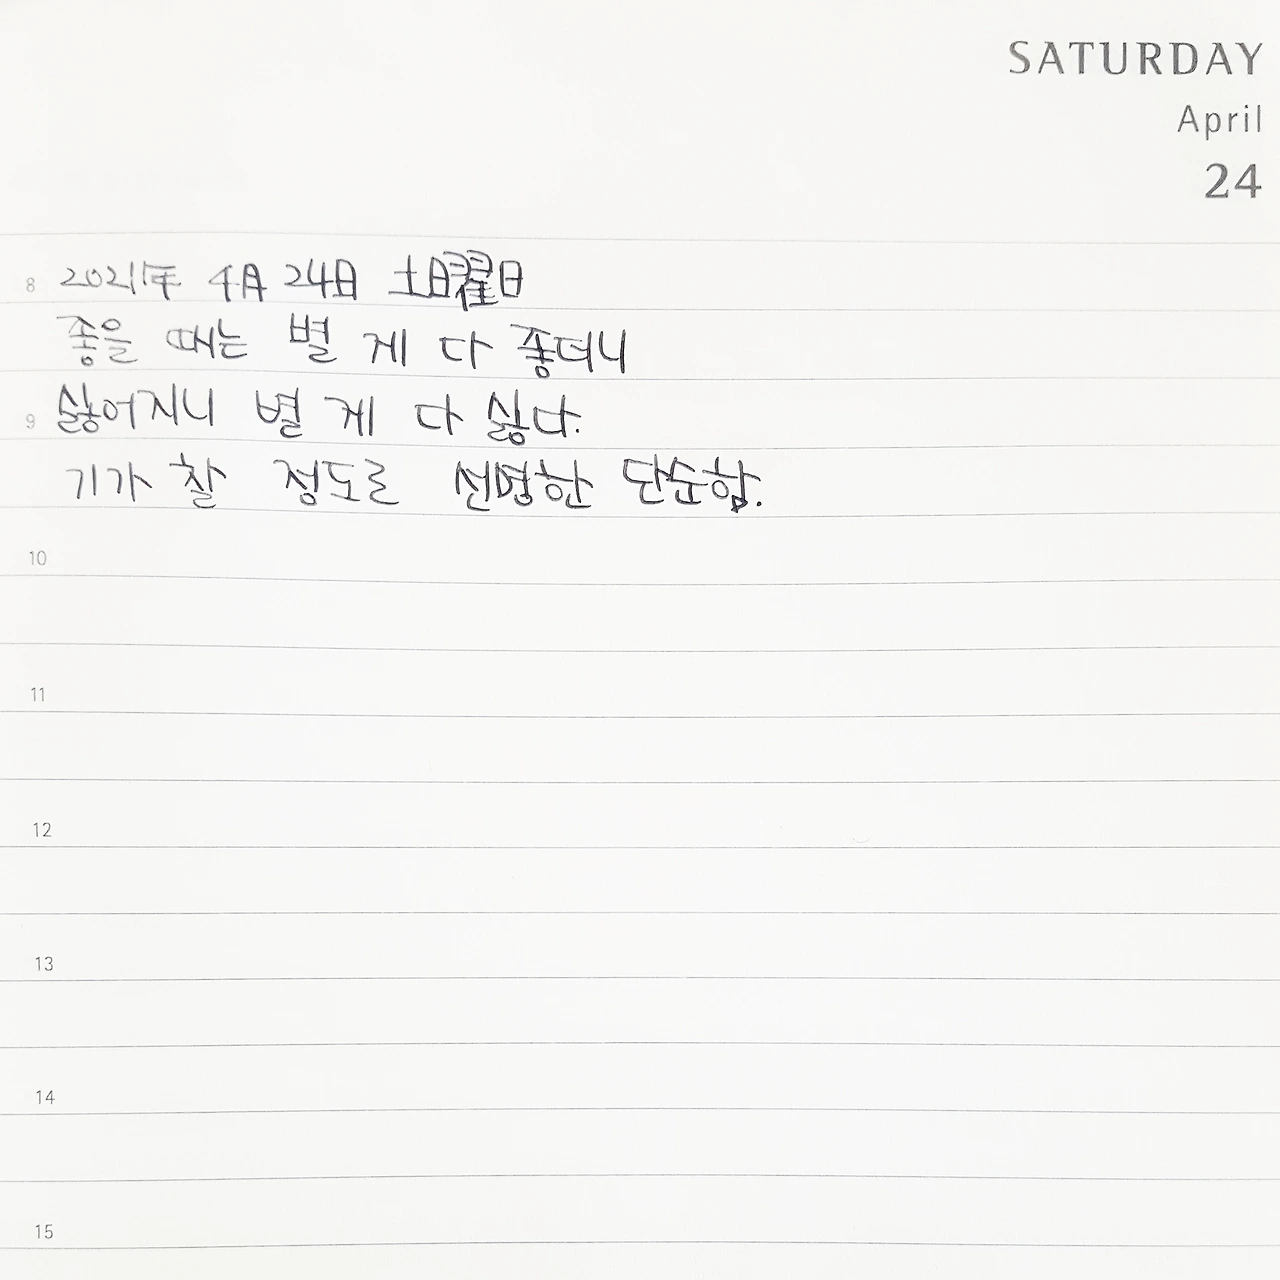 SATURDAY
April
24
8 2021年 4月 24日 土曜日
좋을 때는 별 게 다 좋더니
9 싫어지니 별 게 다 싫다.
기가 찰 정도로 선명한 단순함.
10
11
12
13
14
15